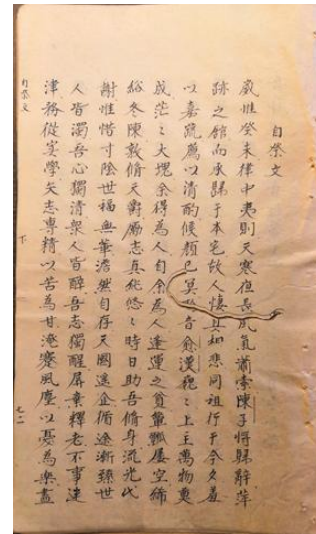 自祭文
歲惟癸未律中夷則天寒夜長風氣蕭索陳子將歸辭萍
跡之館而永歸于本宅故人悽其相悲同祖行于今夕羞
以嘉蔬薦以清酌候顏已冥聆音愈漠穆穆上主萬物奧
成茫茫大塊余得為人自余為人逢運之貧簞瓢屢空絺
綌冬陳敦脩天爵勵志真純悠悠時日助吾脩身流光代
謝惟惜寸陰世福無華澹然自存天國遙企循途漸臻世
人皆濁吾心獨清眾人皆醉吾志獨醒屏棄釋老不事迷
津務從寔學矢志專精以苦為甘淹蹇風塵以憂為樂盡
自祭文
下
七二